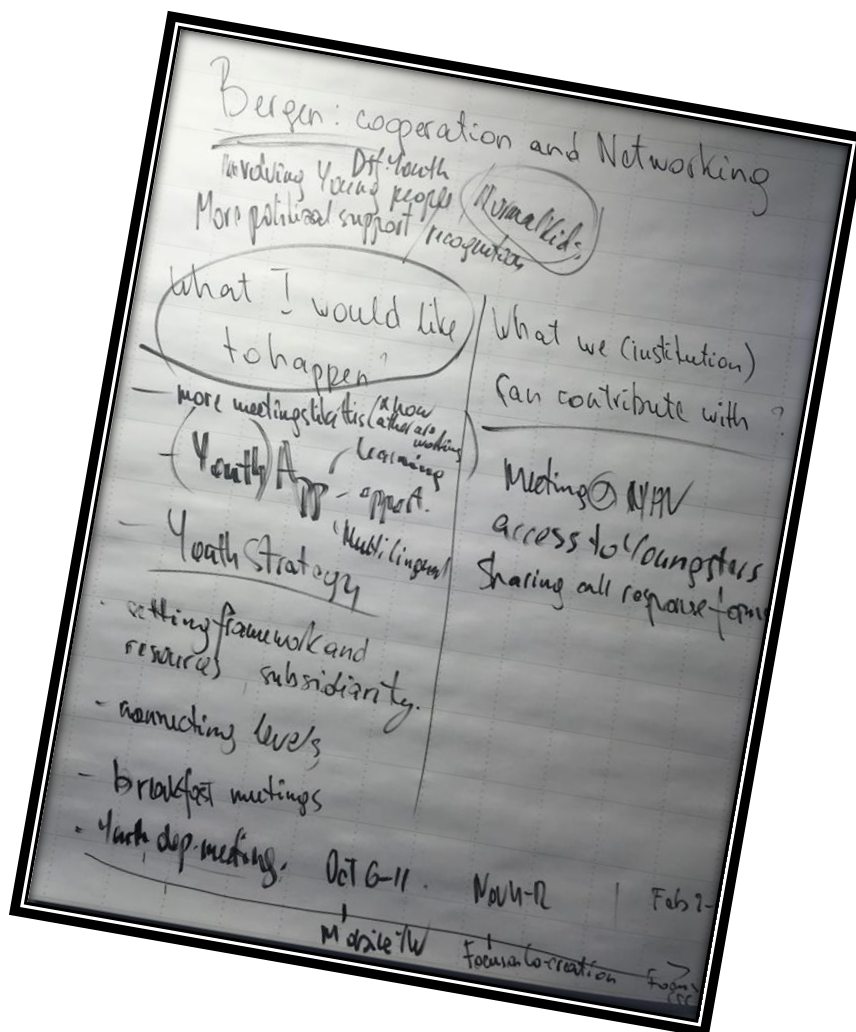 Bergen: cooperation and Networking
Diff. Youth
involving Young people
Normal kids
More political support recognition
What I would like
to happen?
- more meetings like this (know
other are
working)
- (Youth) App - learning
- opport.
- Multilingual
- Youth Strategy
- setting framework and
resources subsidiarity.
- connecting levels
- breakfast meetings
- Youth dep. meeting.
What we (institution)
can contribute with?
Meeting @ NHV
access to Youngsters
Sharing call response forms
Oct 6-11.
Feb 2-
Focus on Co-creation
Focus